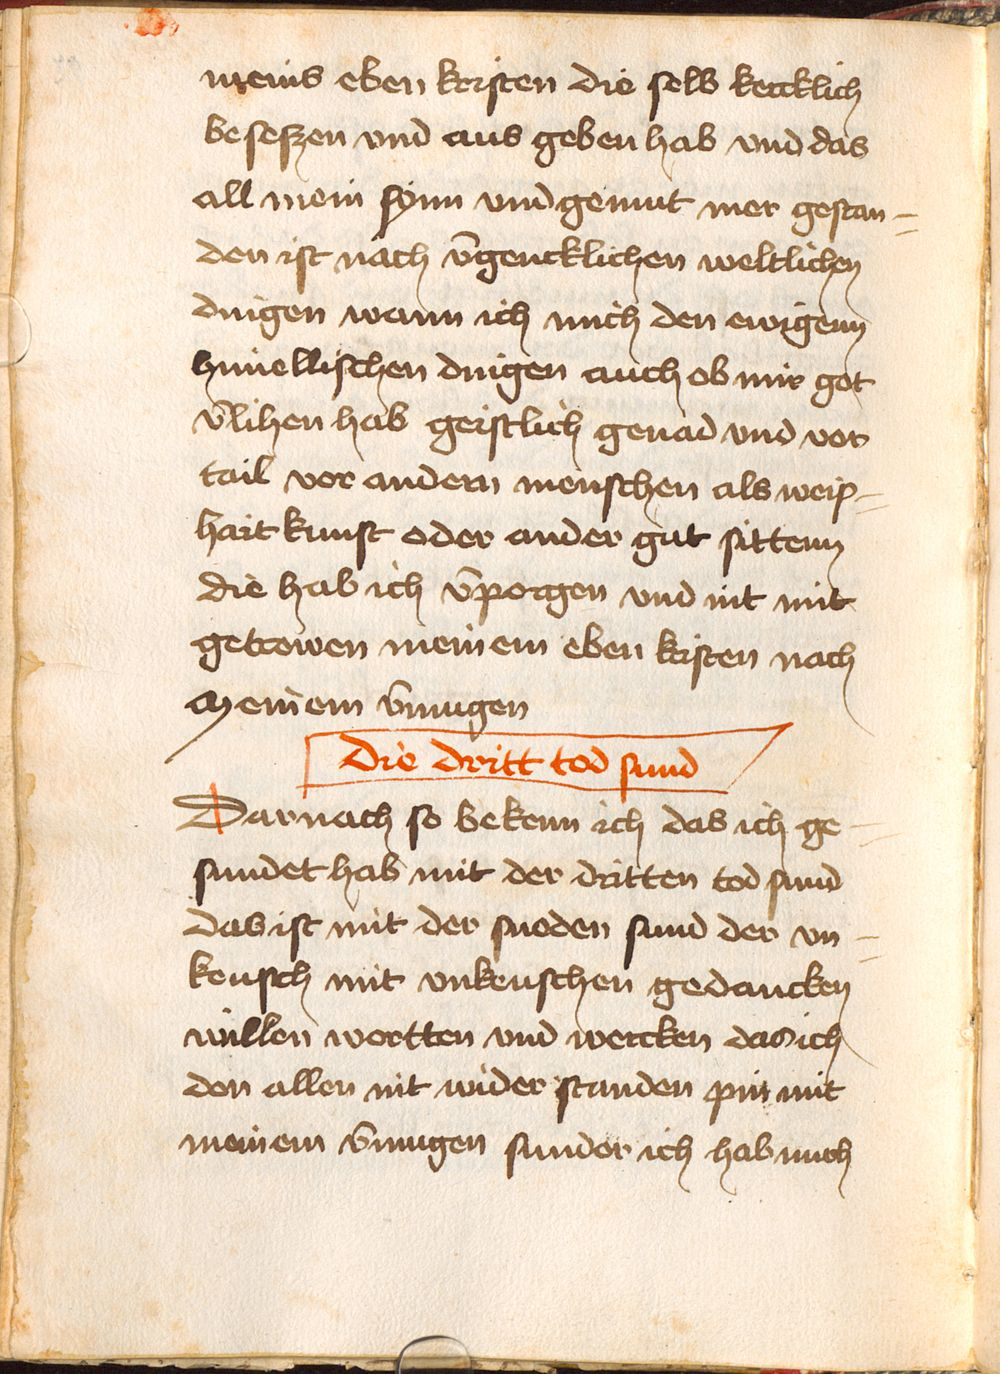 meins eben kristen die selb kercklich
besessen vnd aus geben hab vnd das
all mein synn vnd gemut mer gestan=
den ist nach v̄gencklichen weltlichen
dingen wann ich nach den ewigenn
himellischen dingen auch ob mir got
v̄lihen hab geistlich genad vnd vor
tail vor andern menschen als weiß=
hait kunst oder ander gut sittenn
die hab ich v̄porgen vnd nit mit
getrowen meinem eben kristen nach
Meinem v̄mugen
Die dritt tod sund
Darnach so bekenn ich das ich ge=
sundet hab mit der dritten tod sund
das ist mit der snoden sund der vn=
keusch mit vnkeuschen gedancken
willen wortten vnd wercken das ich
den allen nit wider standen pin mit
meinem v̄mugen sunder ich hab mich